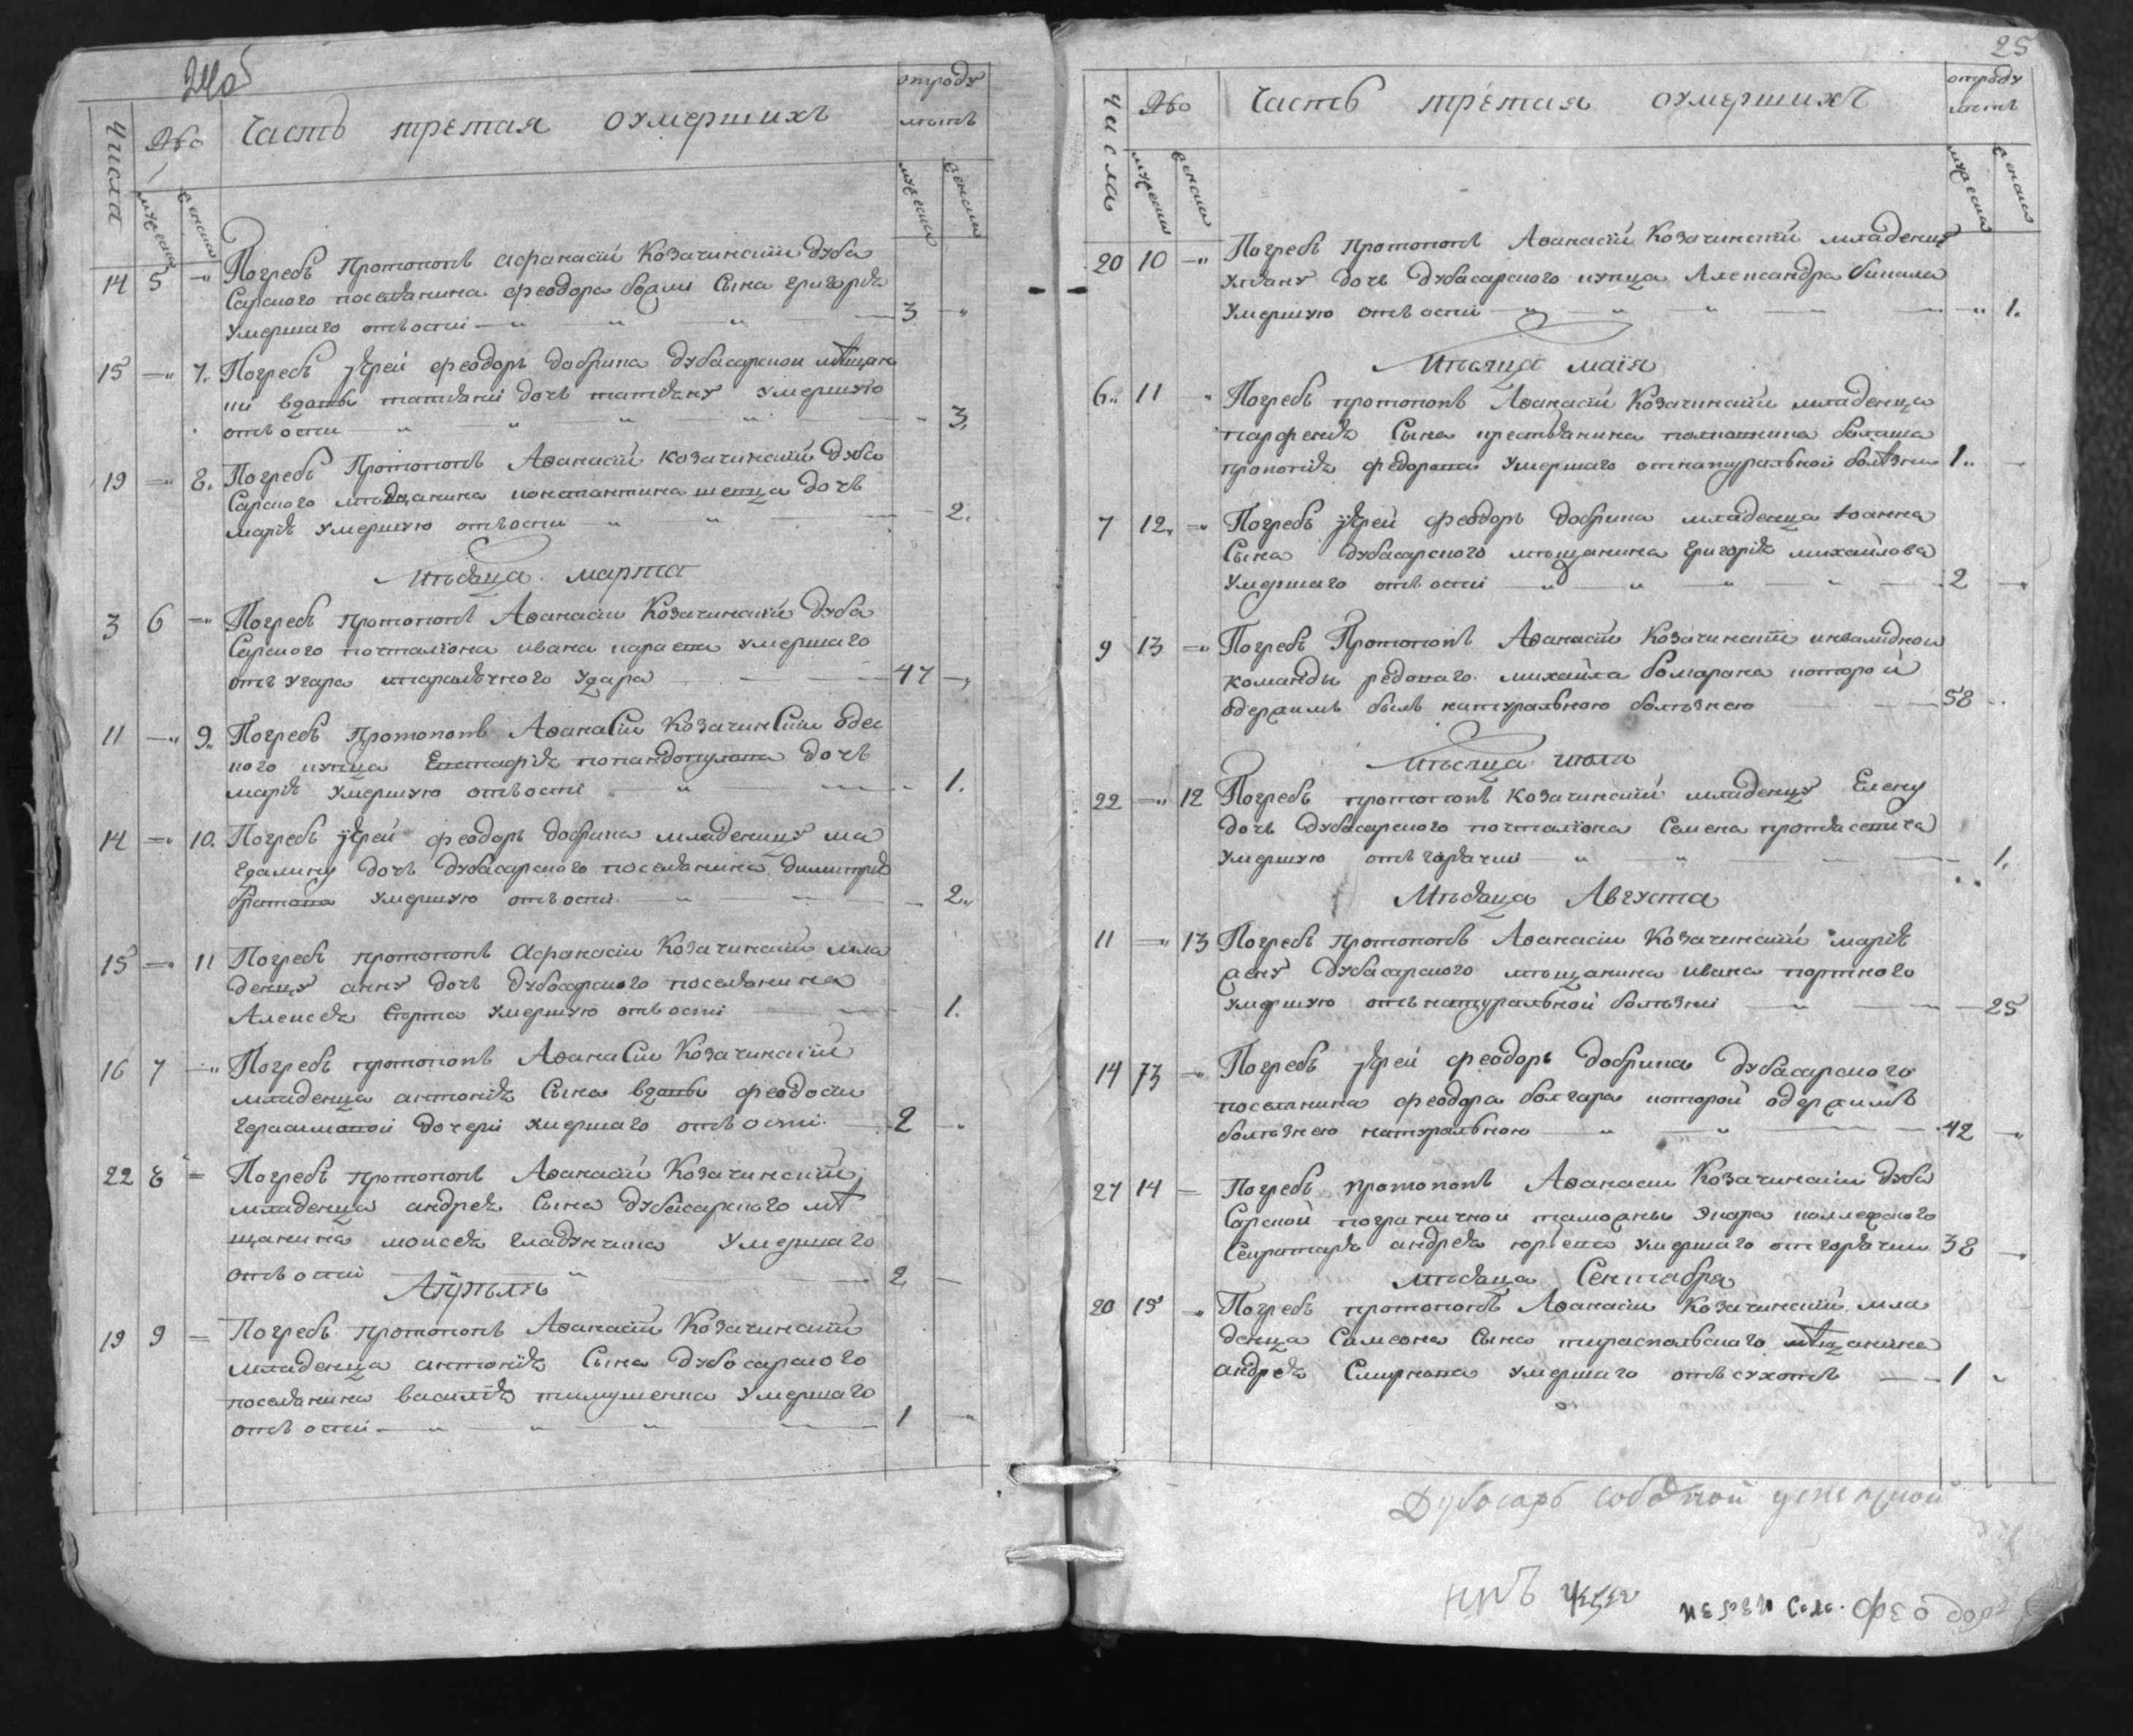 24об
Числа № Часть третая оумершихъ отроду летъ
мужеска женска мужеска женска
14 5 Погребъ Протопопъ Афанасій Козачинскій дуба
сарского поселянина феодора сына григорія
умершаго отъ оспи 3
15 7. Погребъ Іерей феодоръ добрина дубасарской мѣщан
ки вдовы татіяни дочь татіяну умершую
отъ оспи 3.
19 8. Погребъ Протопопъ Аѳанасій Козачинскій дуба
сарского мѣщанина константина шевца дочь
марія умершую отъ оспи 2.
Мѣсяца марта
3 6 Погребъ Протопопъ Аѳанасій Козачинскій дуба
сарского почталіона ивана умершаго
отъ угара удара 47
11 9. Погребъ Протопопъ Аѳанасій Козачинскій одес
кого купца Евстафія попандопулова дочь
марія умершую отъ оспи 1.
14 10. Погребъ Іерей феодоръ добрина младенцу ма
гдалину дочь дубасарского поселянина димитрія
братова умершую отъ оспи 2.
15 11 Погребъ протопопъ Афанасій Козачинскій мла
денцу анну дочь дубосарского поселянина
Алексея умершую отъ оспи 1.
16 7 Погребъ протопопъ Аѳанасій Козачинскій
младенца антонія сына вдовы феодосіи
герасимовой дочери умершаго отъ оспи 2
22 8 Погребъ протопопъ Аѳанасій Козачинскій
младенца андрея сына дубасарского мѣ
щанина моисея гладункина умершаго
отъ оспи 2
Апрѣль
19 9 Погребъ протопопъ Аѳанасій Козачинскій
младенца антонія сына дубосарского
поселянина василія тимушенка умершаго
отъ оспи 1
25
Числа № Часть третая оумершихъ отроду летъ
мужеска женска мужеска женска
20 10 Погребъ протопопъ Аѳанасій Козачинскій младенцу
уліяну дочь дубасарского купца Александра бикала
умершую отъ оспи 1.
Мѣсяца маія
6 11 Погребъ протопопъ Аѳанасій Козачинскій младенца
парфенія сына крестьянина полковника
прокопія федорова умершаго отнатуральной болѣзни 1
7 12 Погребъ Іерей феодоръ добрина младенца іоанна
сына дубасарского мѣщанина григорія михайлова
умершаго отъ оспи 2
9 13 Погребъ Протопопъ Аѳанасій Козачинскій инвалидной
команды редоваго михайла которой
одержимъ былъ натуральною болѣзнею 58
Мѣсяца июля
22 12 Погребъ протопопъ козачинскій младенцу Елену
дочь дубасарского почталіона Семена
умершую отъ горячки 1.
Мѣсяца Августа
11 13 Погребъ протопопъ Аѳанасій Козачинскій марія
жену дубасарского мѣщанина ивана портного
умершую отъ натуральной болѣзни 25
14 13 Погребъ Іерей феодоръ добрина дубасарского
поселянина феодора болгара которой одержимъ
болѣзнею натуральною 42
27 14 Погребъ протопопъ Аѳанасій Козачинскій дуба
сарской пограничной таможны коллежского
секретаря андрея юрьева умершаго отгорячки 38
мѣсяца Сентября
20 15 Погребъ протопопъ Аѳанасій Козачинскій мла
денца Симеона сына тираспольскаго мѣщанина
андрея Смирнова умершаго отъ сухотъ 1
Дубосарь